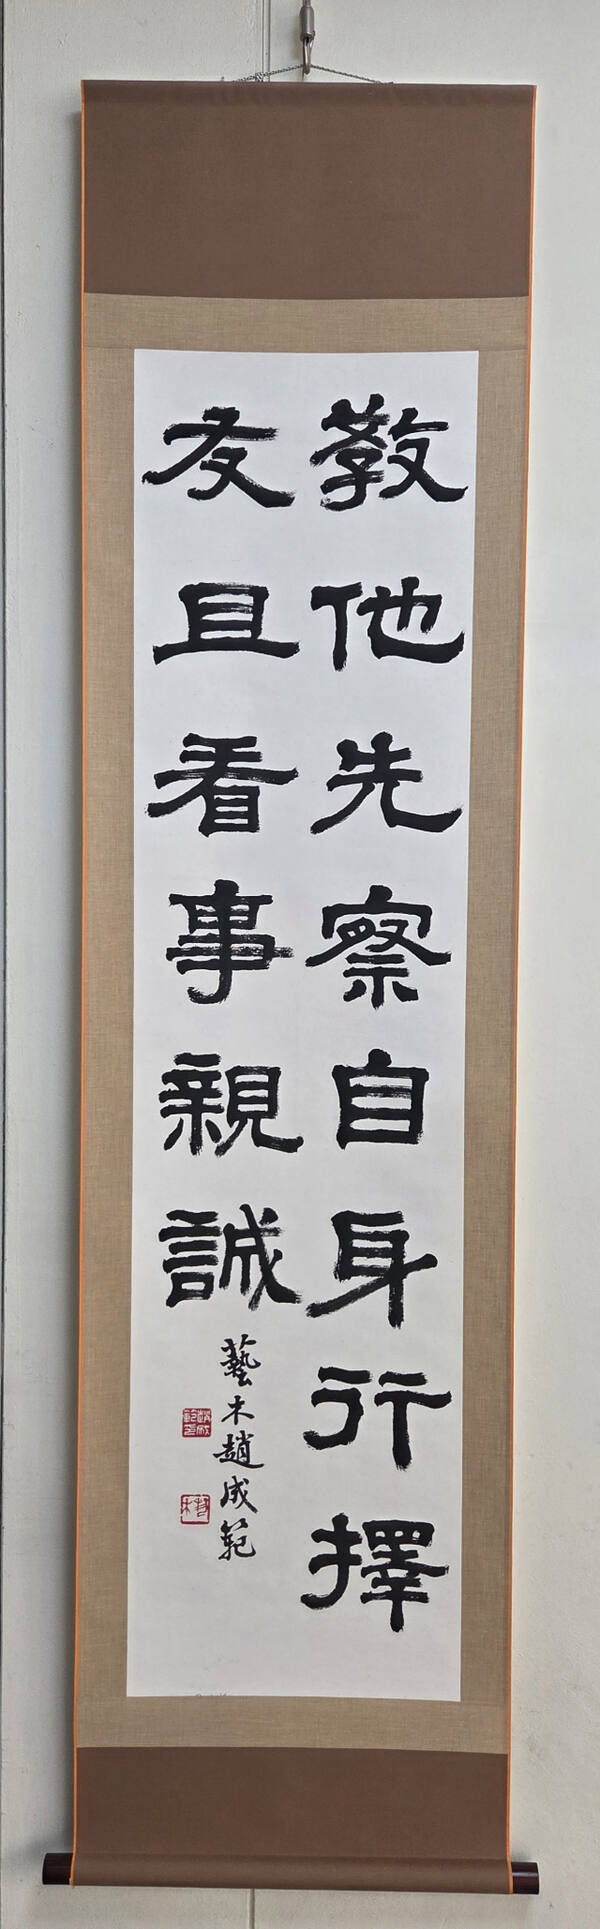 教他先察自身行擇
友且看事親誠
藝木趙成範